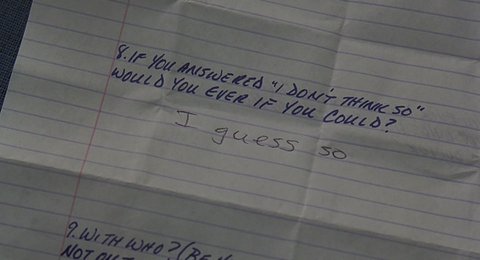 8. IF YOU ANSWERED "I DON'T THINK SO"
WOULD YOU EVER IF YOU COULD?
I guess so
9. WITH WHO? (BE
NOT